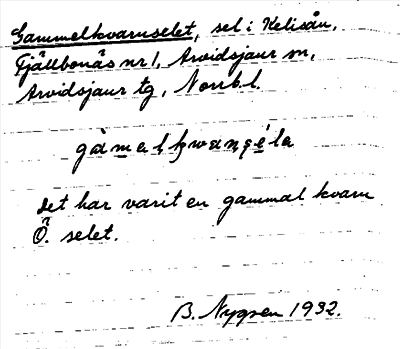 Gammelkvarnselet, sel i Kelisån,
Fjällbonäs nr 1, Arvidsjaur sn,
Arvidsjaur tg, Norrb. l.
gàmalkwaṇṣéla
Det har varit en gammal kvarn
Ö. selet.
B. Nygren 1932.